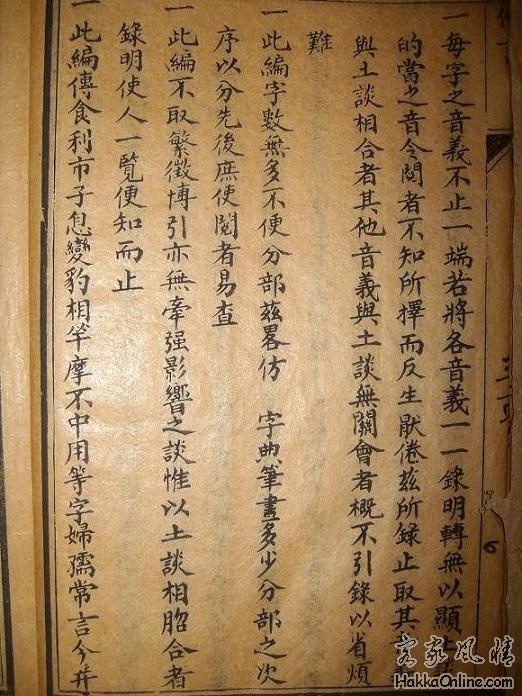 一每字之音義不止一端若將各音義一一錄明轉無以顯
的當之音令閱者不知所擇而反生厭倦茲所錄止取其
與土談相合者其他音義與土談無關會者概不引錄以省煩
難
一此編字數無多不便分部茲畧仿 字典筆畫多少分部之次
序以分先後庶使閱者易查
一此編不取繁徵博引亦無牽强影響之談惟以土談相脗合者
錄明使人一覽便知而止
一此編傳食利市子息變豹相竿摩不中用等字婦孺常言今并
客家風情
HakkaOnline.com